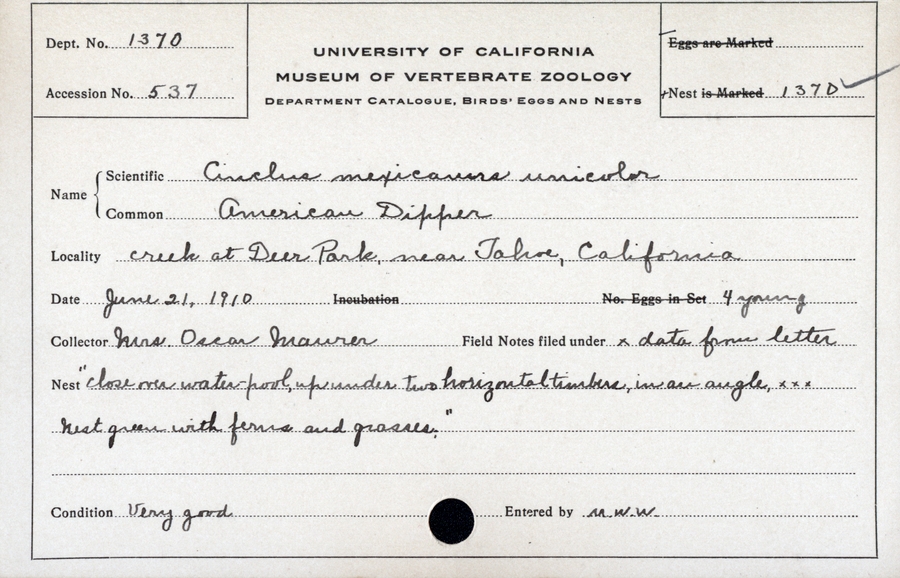 Dept. No. 1370
Accession No. 537
UNIVERSITY OF CALIFORNIA
MUSEUM OF VERTEBRATE ZOOLOGY
DEPARTMENT CATALOGUE, BIRDS' EGGS AND NESTS
Eggs are Marked
Nest is Marked 1370
Name
Scientific Cinclus mexicanus unicolor
Common American Dipper
Locality creek at Deer Park, near Tahoe, California
Date June 21, 1910 Incubation No. Eggs in Set 4 young
Collector Mrs. Oscar Maurer Field Notes filed under x data from letter
Nest "close over water-pool, up under two horizontal timbers, in an angle, x x x
Nest green with ferns and grasses."
Condition Very good Entered by M.W.W.